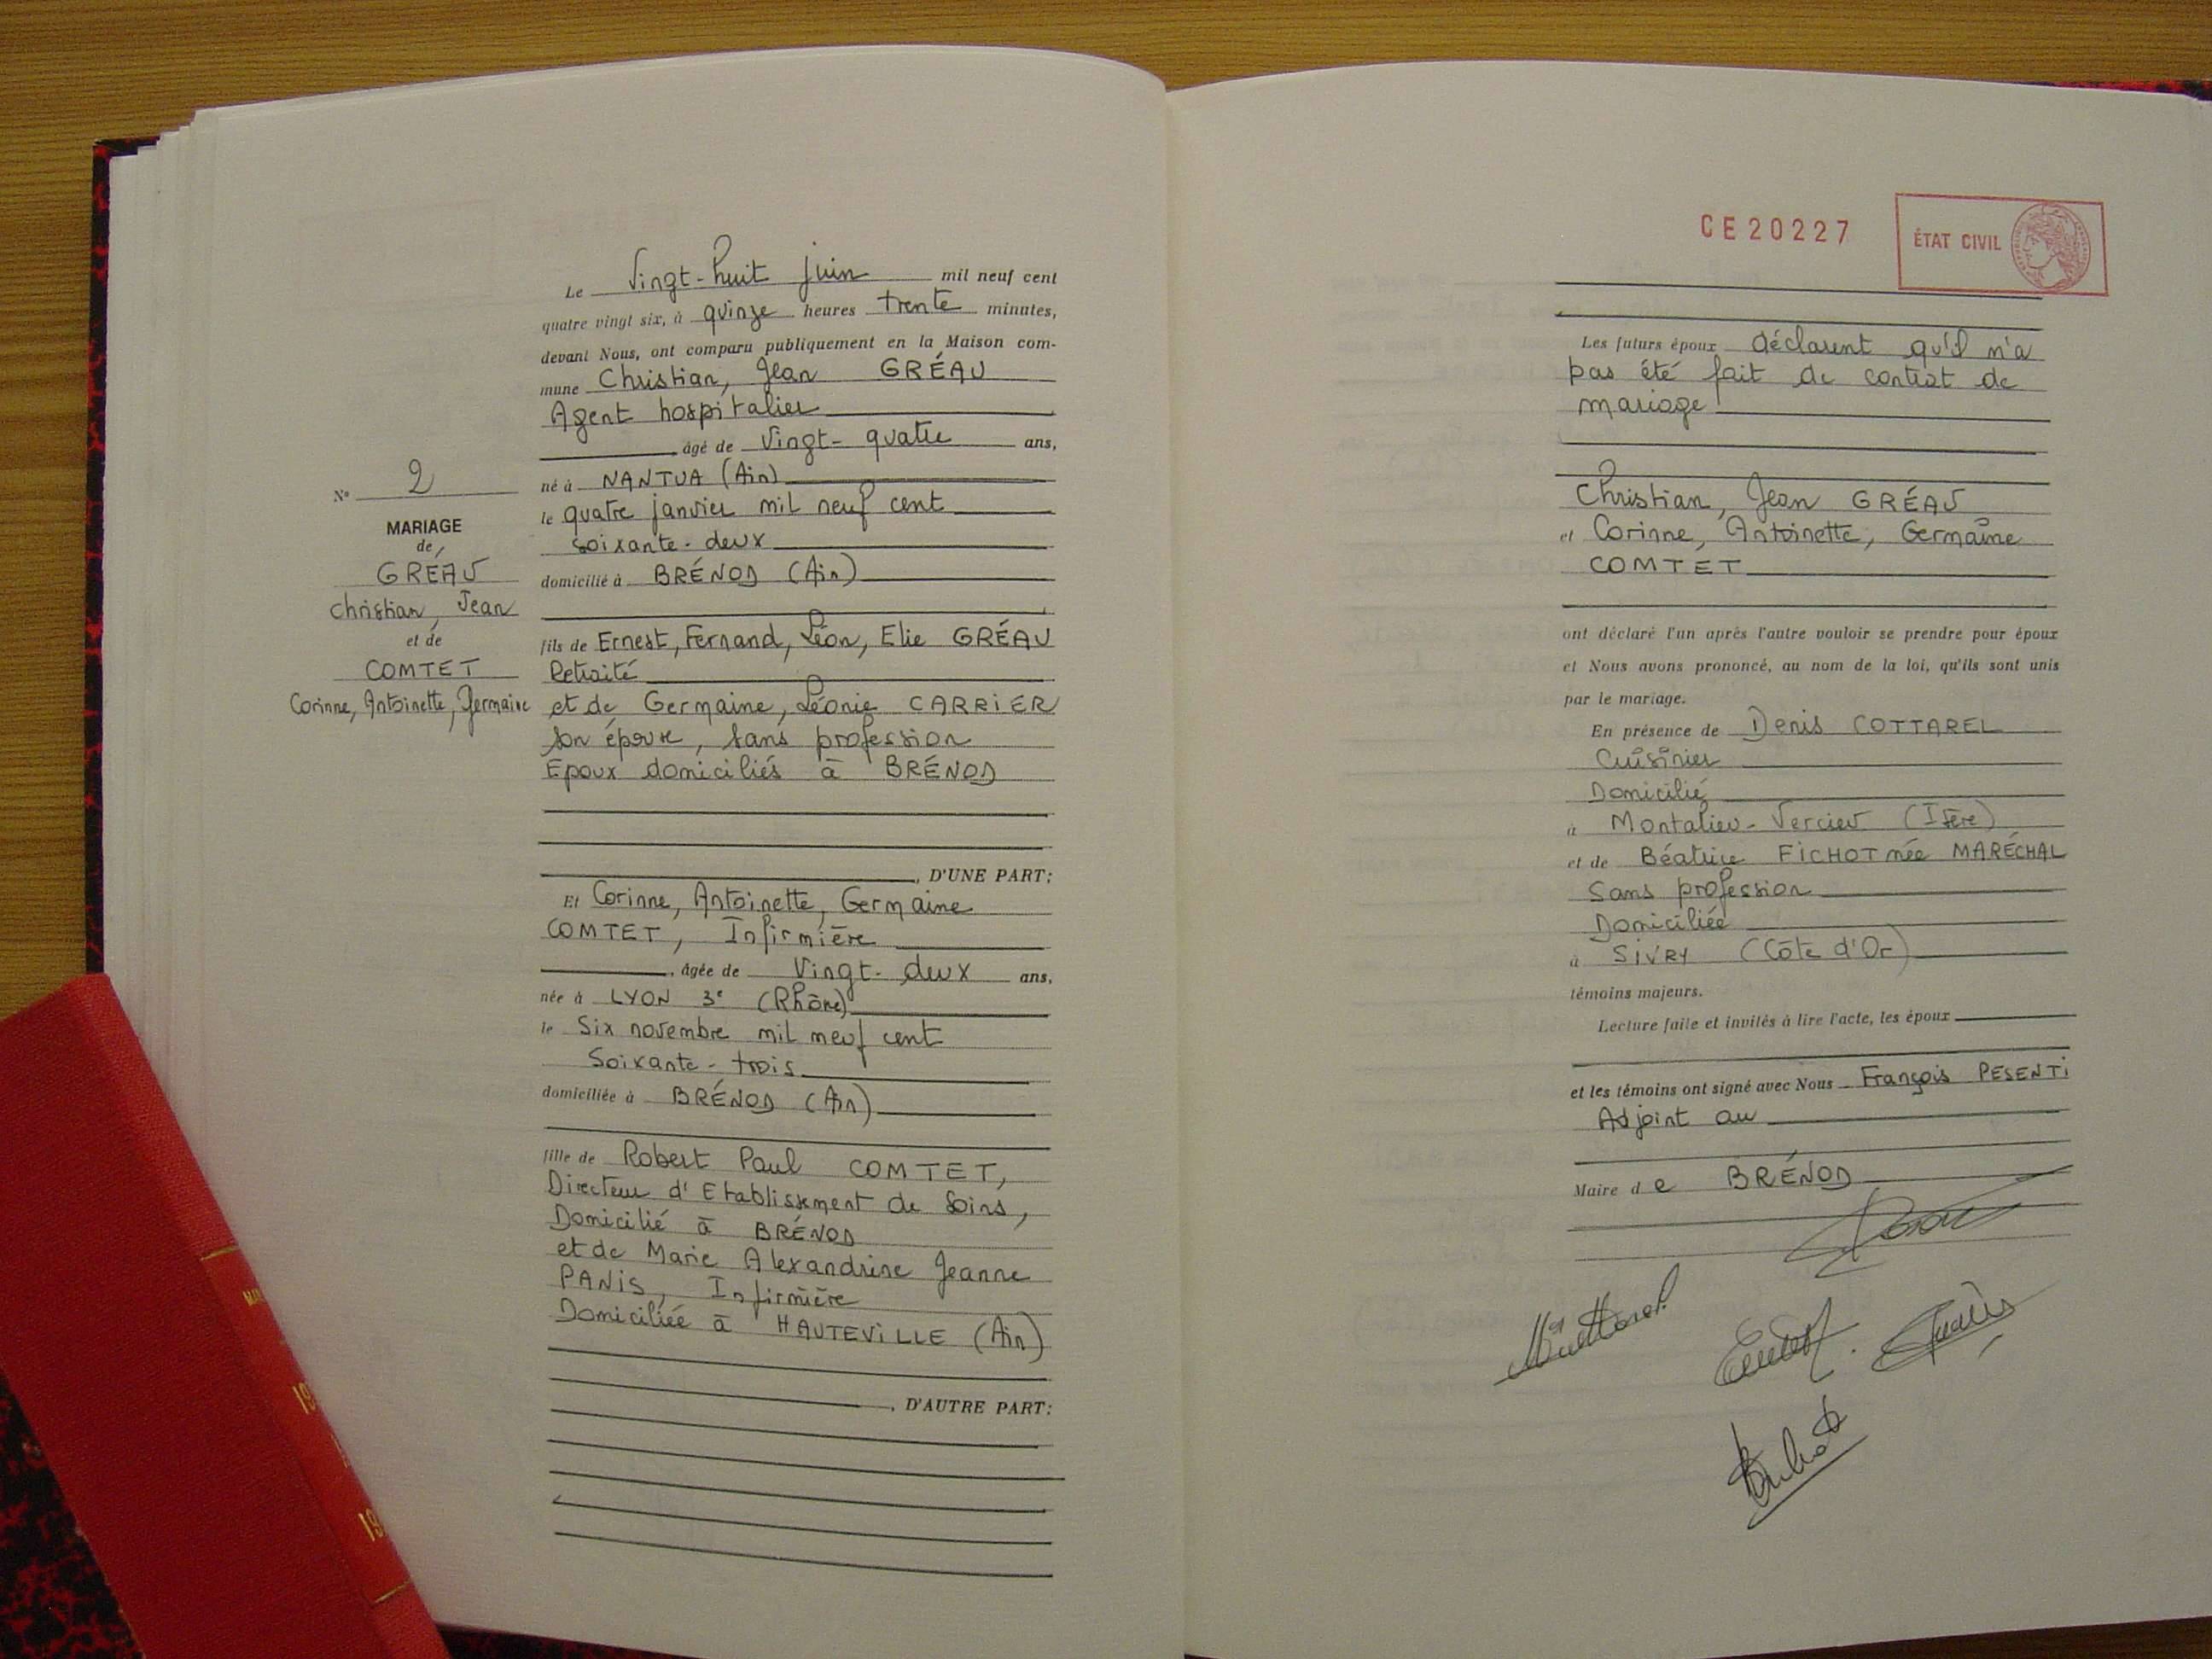 N° 2
MARIAGE
de
GRÉAU
Christian, Jean
et de
COMTET
Corinne, Antoinette, Germaine
Le Vingt-huit juin mil neuf cent
quatre vingt six, à quinze heures trente minutes,
devant Nous, ont comparu publiquement en la Maison com-
mune Christian, Jean GRÉAU
Agent hospitalier
âgé de Vingt-quatre ans,
né à NANTUA (Ain)
le quatre janvier mil neuf cent
soixante-deux
domicilié à BRÉNOD (Ain)
fils de Ernest, Fernand, Léon, Elie GRÉAU
Retraité
et de Germaine, Léonie CARRIER
son épouse, sans profession
Epoux domiciliés à BRÉNOD
, D'UNE PART;
Et Corinne, Antoinette, Germaine
COMTET, Infirmière
, âgée de Vingt-deux ans,
née à LYON 3e (Rhône)
le Six novembre mil neuf cent
Soixante-trois
domiciliée à BRÉNOD (Ain)
fille de Robert Paul COMTET,
Directeur d'Etablissement de Soins,
Domicilié à BRÉNOD
et de Marie Alexandrine Jeanne
PANIS, Infirmière
Domiciliée à HAUTEVILLE (Ain)
, D'AUTRE PART;
CE20227
ÉTAT CIVIL
Les futurs époux déclarent qu'il n'a
pas été fait de contrat de
mariage
Christian, Jean GRÉAU
et Corinne, Antoinette, Germaine
COMTET
ont déclaré l'un après l'autre vouloir se prendre pour époux
et Nous avons prononcé, au nom de la loi, qu'ils sont unis
par le mariage.
En présence de Denis COTTAREL
Cuisinier
Domicilié
à Montalieu-Vercieu (Isère)
et de Béatrice FICHOT née MARÉCHAL
Sans profession
Domiciliée
à SIVRY (Côte d'Or)
témoins majeurs.
Lecture faite et invités à lire l'acte, les époux
et les témoins ont signé avec Nous François PESENTI
Adjoint au
Maire de BRÉNOD
19
19